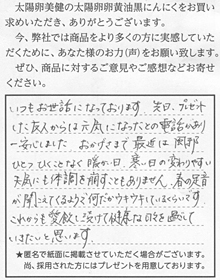 太陽卵美健の太陽卵卵黄油黒にんにくをお買い
求めいただき、ありがとうございます。
今、弊社では商品をより多くの方に実感していた
だくために、あなた様のお力(声)をお願い致します。
ぜひ、商品に対するご意見やご感想などお寄せ
ください。
いつもお世話になっております。先日、プレゼント
した友人からは元気になったとの電話があり
一安心しました。おかげさまで最近は風邪
ひとつひくことなく暖かい日、寒い日の変わりやすい
天気にも体調を崩すこともありません。春の足音
が聞こえてくるようで何だかウキウキしているくらいです。
これからも愛飲し続けて健康な日々を過ごして
いきたいと思います。
★匿名で紙面に掲載させていただく場合がございます。
尚、採用された方にはプレゼントを用意しております。